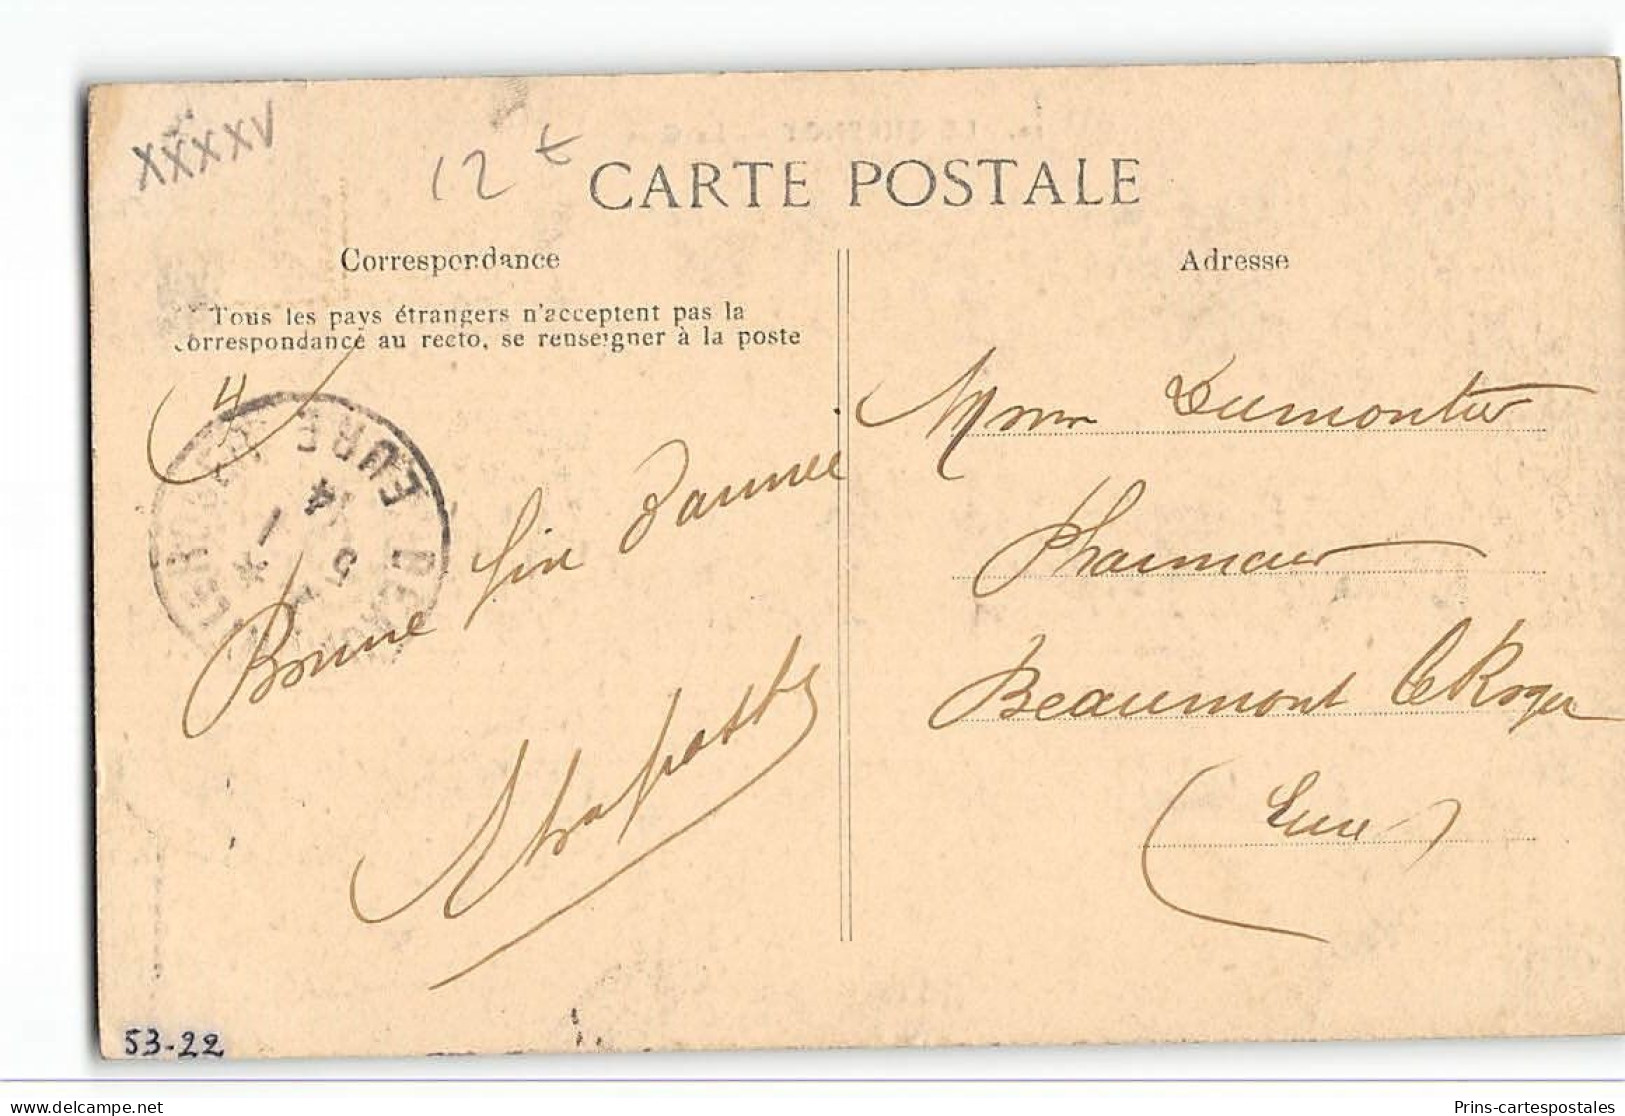 XXXXV
12 €
CARTE POSTALE
Correspondance
Adresse
Tous les pays étrangers n'acceptent pas la
correspondance au recto, se renseigner à la poste
Bonne fin d'année
Mme Dumontier
Pharmacie
Beaumont le Roger
(Eure)
EURE
5 - 1
4
53-22
Prins-cartespostales